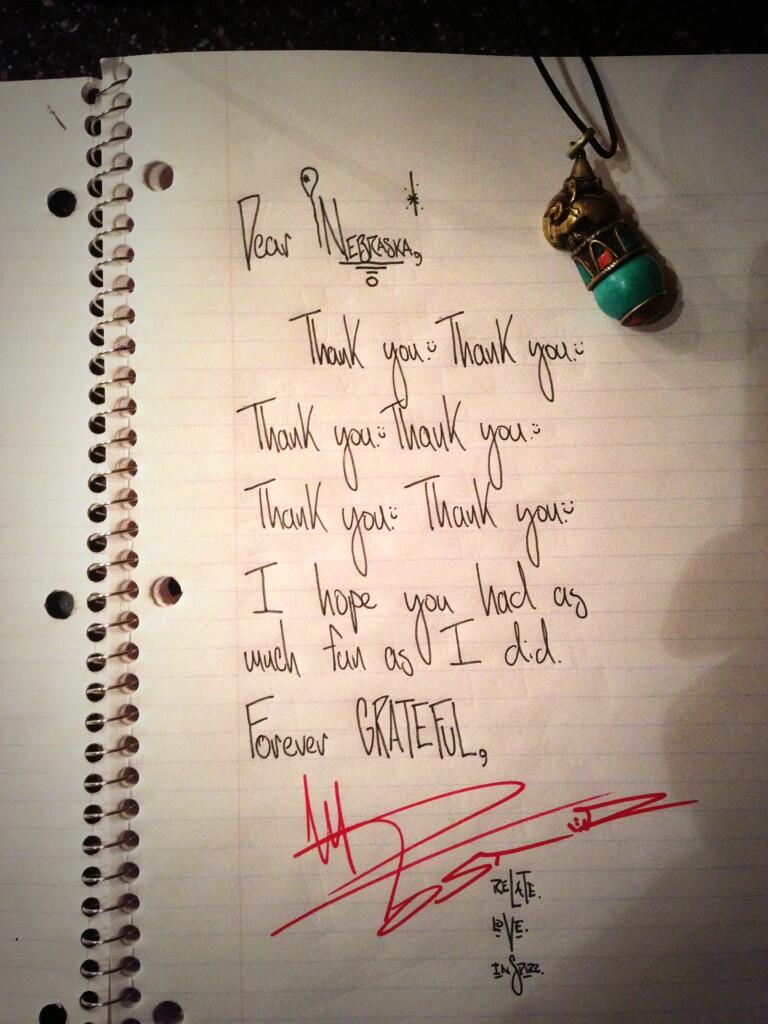 Dear Nebraska,
Thank you. Thank you.
Thank you. Thank you.
Thank you. Thank you.
I hope you had as
much fun as I did.
Forever GRATEFUL,
RELATE.
LOVE.
INSPIRE.